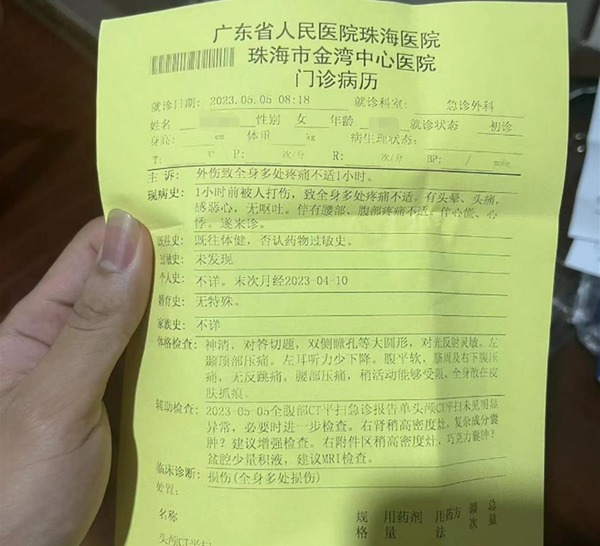 广东省人民医院珠海医院
珠海市金湾中心医院
门诊病历
就诊日期: 2023.05.05 08:18 就诊科室: 急诊外科
姓名 性别 女 年龄 就诊状态 初诊
身高: cm 体重 kg 病生理状态:
T: ℃ P: 次/分 R: 次/分 BP: / mmHg
主 诉: 外伤致全身多处疼痛不适1小时。
现病史: 1小时前被人打伤，致全身多处疼痛不适。有头晕、头痛，
感恶心，无呕吐。伴有腰部、腹部疼痛不适，伴心慌、心
悸。遂来诊。
既往史: 既往体健，否认药物过敏史。
过敏史: 未发现
个人史: 不详。末次月经2023-04-10
婚育史: 无特殊。
家族史: 不详
体格检查: 神清，对答切题，双侧瞳孔等大圆形，对光反射灵敏。左
颞顶部压痛。左耳听力少下降。腹平软，肠周及右下腹压
痛，无反跳痛。腰部压痛，稍活动能够受限，全身散在皮
肤抓痕。
辅助检查: 2023-05-05全腹部CT平扫急诊报告单头颅CT平扫未见明显
异常，必要时进一步检查。右肾稍高密度灶，复杂成分囊
肿？建议增强检查。右附件区稍高密度灶，巧克力囊肿？
盆腔少量积液，建议MRI检查。
临床诊断: 损伤(全身多处损伤)
处置:
名称 规格 用药剂量 用药方法 频次 总量
头颅CT平扫